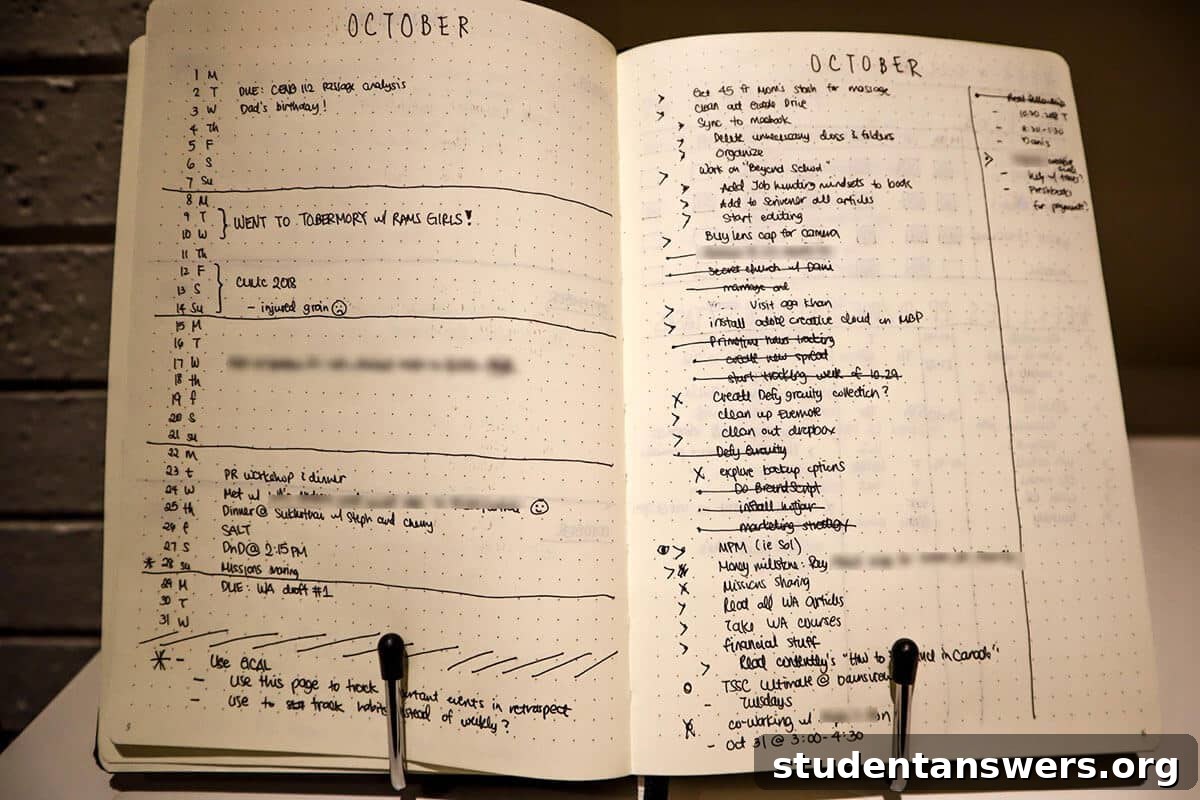 OCTOBER
1 M
2 T DUE: CENG 112 passage analysis
3 W Dad's birthday!
4 Th
5 F
6 S
7 Su
8 M
9 T
10 W WENT TO TOBERMORY w/ RAMS GIRLS!
11 Th
12 F
13 S CUUC 2018
14 Su - injured groin
15 M
16 T
17 W
18 th
19 f
20 S
21 su
22 M
23 t PR workshop & dinner
24 W Met w/
25 th Dinner@ w/ Steph and
26 f SALT
27 S DnD@ 2:15PM
* 28 su Missions sharing
29 M DUE: WA draft #1
30 T
31 W
* - Use GCAL
- Use this page to track events in retrospect
- Use to track habits of weekly?
5
OCTOBER
> Get 45 fr Mom's stash for massage
> Clean out Google Drive
> Sync to macbook
> Delete unnecessary docs & folders
> Organize
> Work on "Beyond School"
> Add Job hunting mindsets to book
> Add to Scrivener all articles
> Start editing
> Buy lens cap for camera
Secret church w/ Dani
> Visit aga khan
> install adobe creative cloud on MBP
tracking
create new spread
start tracking week of 10.29
X Create Defy gravity collection?
> clean up Evernote
> clean out dropbox
Defy Gravity
X explore backup options
Do BrandScript
install hotjar
marketing strategy
> MPM (ie Sol)
> Money milestone: Pay
X Missions sharing
> Read all WA articles
> Take WA courses
> financial stuff
> Read contently's "How to in Canada"
o TSSC Ultimate @
- Tuesdays
X co-working w/
- Oct 31 @ 3:00-4:30
- 10.30. T
- Dani's
>
- Help w/
- Freshbooks
for payments?
studentanswers.org